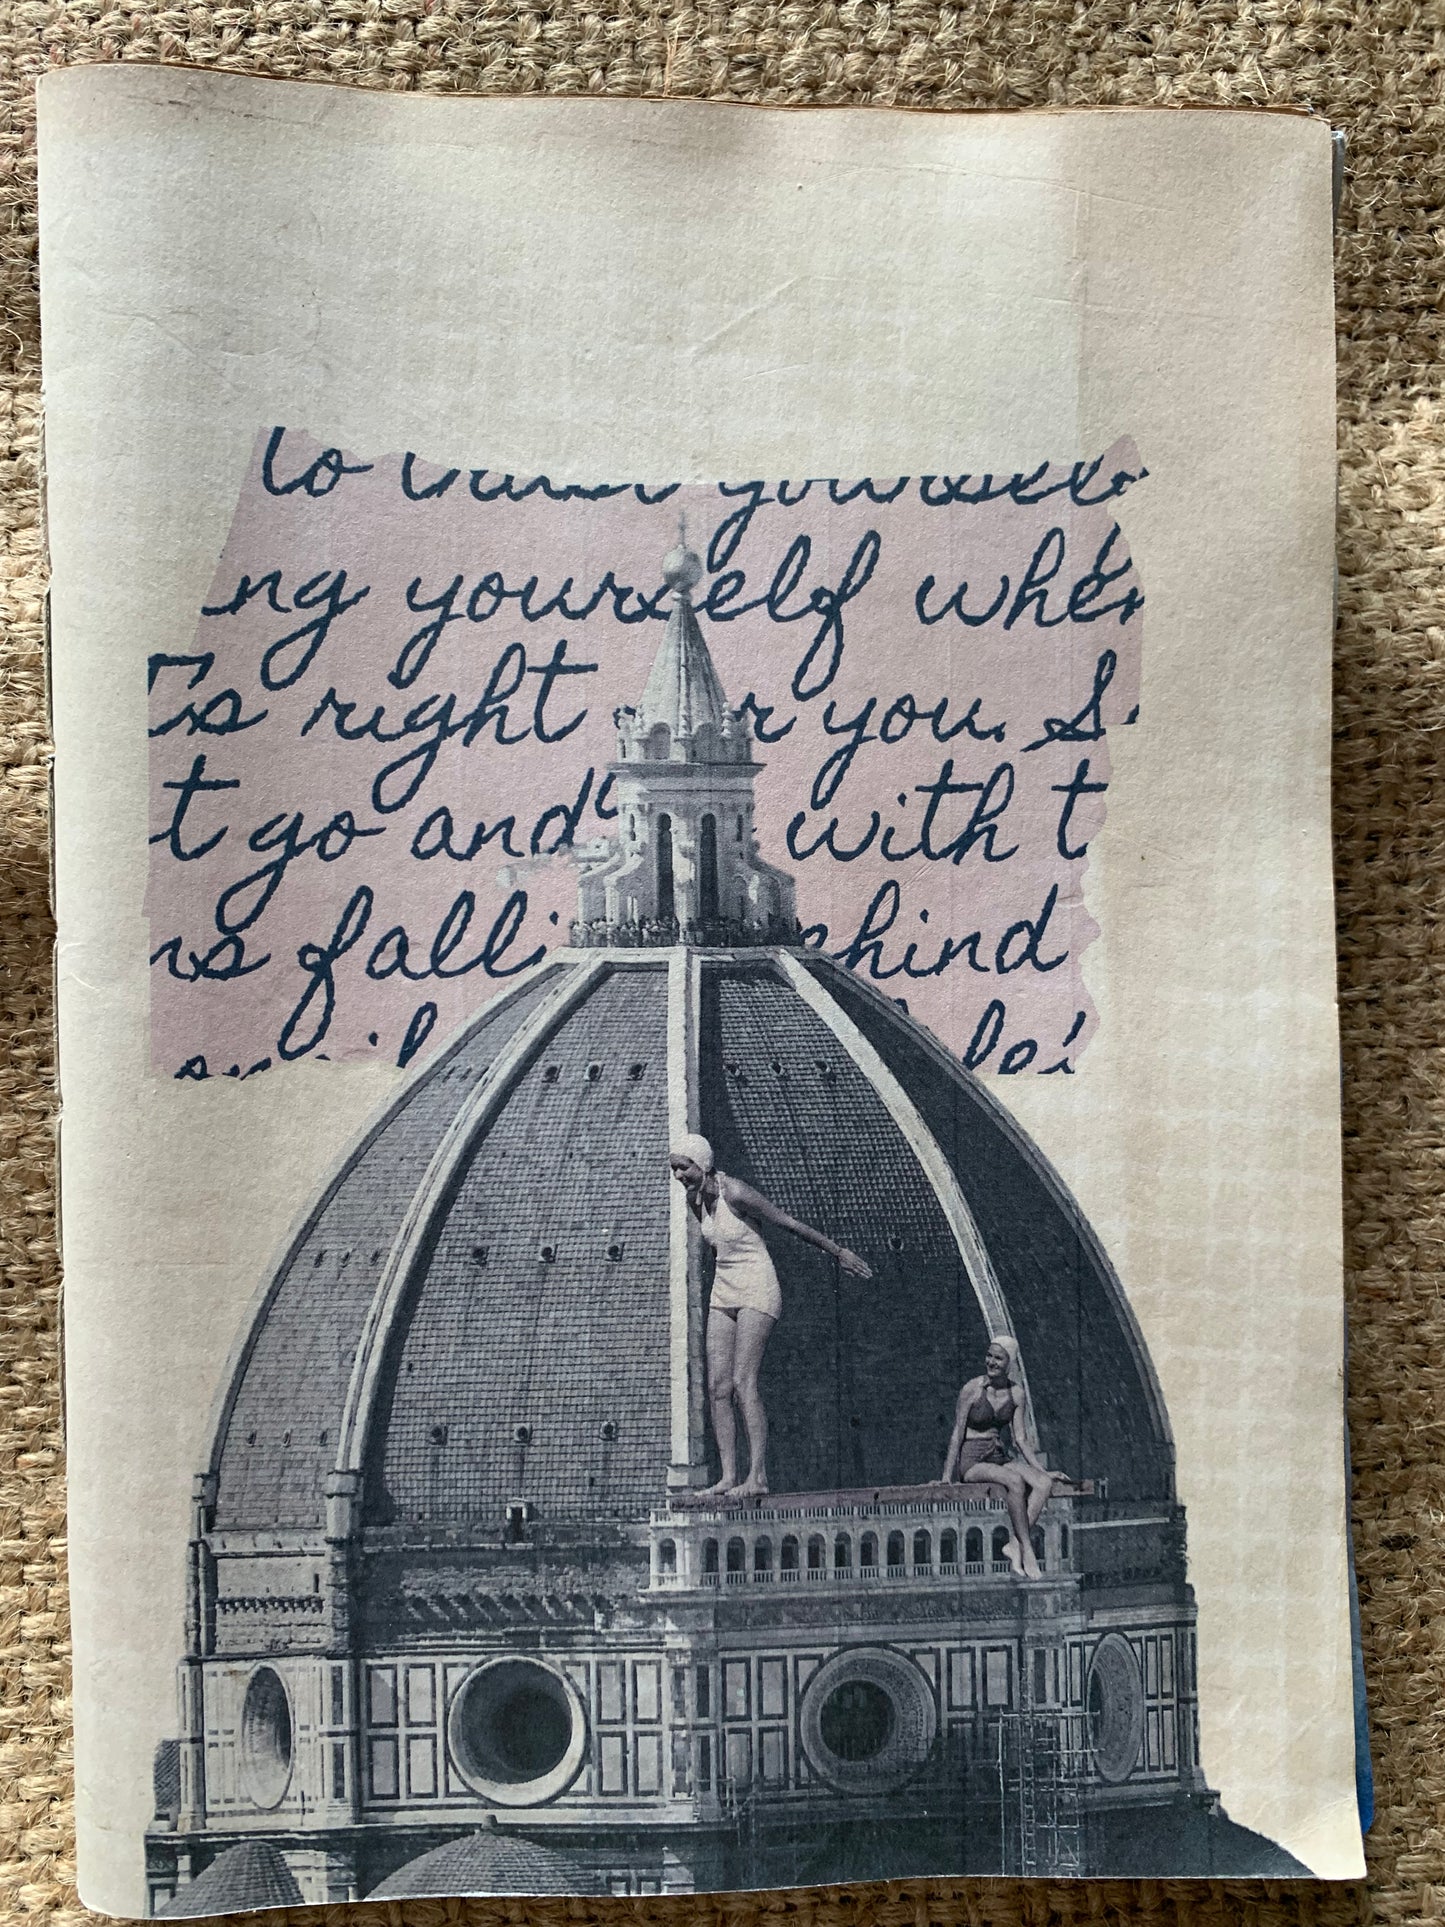 to trust yourself
ng yourself when
t's right or you. S
t go and with t
ns falli ehind